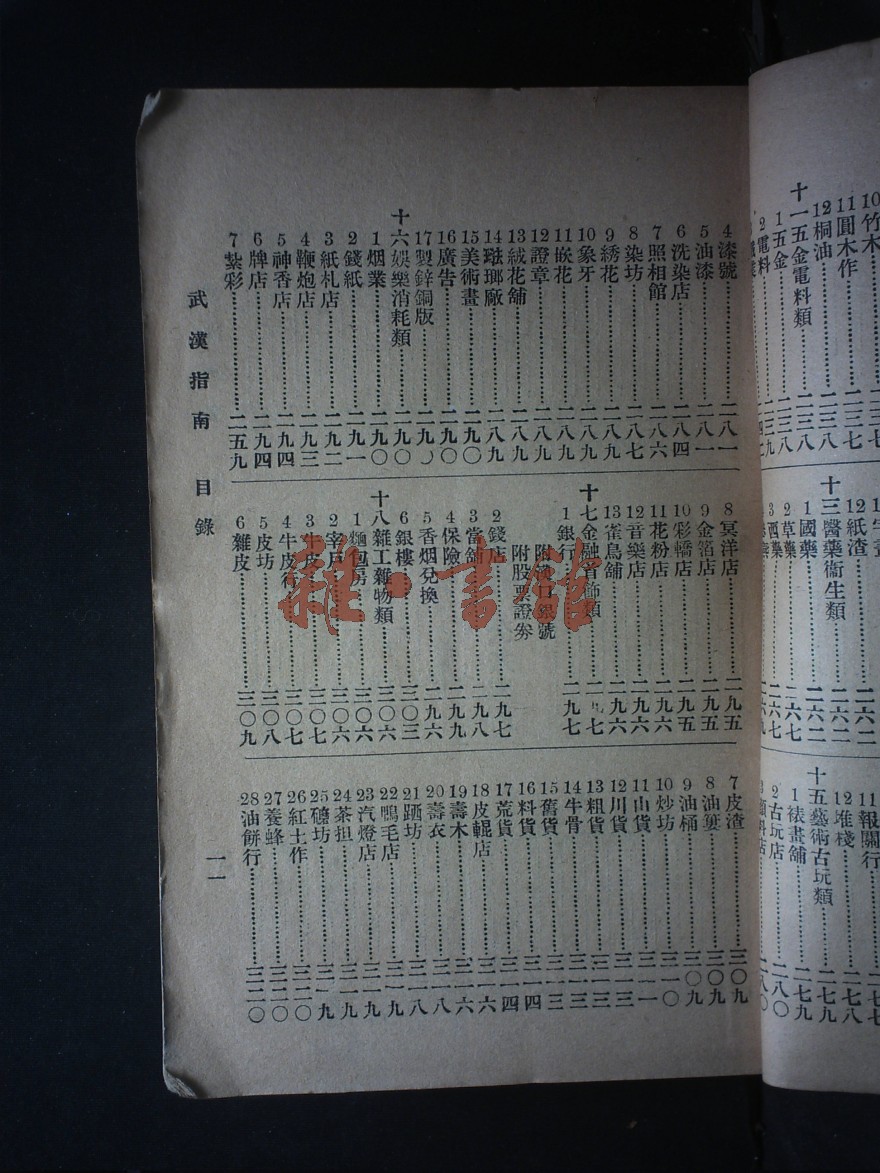 10竹木
11圓木作
12桐油
十一五金電料類
1五金
2電料
12紙渣
十三醫藥衞生類
1國藥
2草藥
3西藥
11報關行
12堆棧
十五藝術古玩類
1裱畫舖
2古玩店
4漆號⋯⋯二八一
5油漆⋯⋯二八一
6洗染店⋯⋯二八四
7照相館⋯⋯二八六
8染坊⋯⋯二八七
9綉花⋯⋯二八九
10象牙⋯⋯二八九
11嵌花⋯⋯二八九
12證章⋯⋯二八九
13絨花舖⋯⋯二八九
14琺瑯廠⋯⋯二八九
15美術畫⋯⋯二九〇
16廣告⋯⋯二九〇
17製鋅銅版⋯⋯二九〇
十六娛樂消耗類⋯⋯二九〇
1烟業⋯⋯二九〇
2錢紙⋯⋯二九一
3紙札店⋯⋯二九二
4鞭炮店⋯⋯二九三
5神香店⋯⋯二九四
6牌店⋯⋯二九四
7紮彩⋯⋯二五九
8冥洋店⋯⋯二九五
9金箔店⋯⋯二九五
10彩轎店⋯⋯二九五
11花粉店⋯⋯二九六
12音樂店⋯⋯二九六
13雀鳥舖⋯⋯二九六
十七金融首飾類⋯⋯二九七
1銀行⋯⋯二九七
附漢口銀號
附股票證券
2錢店⋯⋯二九七
3當舖⋯⋯二九八
4保險⋯⋯二九九
5香烟兌換⋯⋯二九六
6銀樓⋯⋯三〇三
十八雜工雜物類⋯⋯三〇六
1麵包房⋯⋯三〇六
2宰戶⋯⋯三〇六
3牛皮⋯⋯三〇七
4牛皮行⋯⋯三〇七
5皮坊⋯⋯三〇八
6雜皮⋯⋯三〇九
7皮渣⋯⋯三〇九
8油簍⋯⋯三〇九
9油桶⋯⋯三〇九
10炒坊⋯⋯三一〇
11山貨⋯⋯三一一
12川貨⋯⋯三一三
13粗貨⋯⋯三一三
14牛骨⋯⋯三一三
15舊貨⋯⋯三一三
16料貨⋯⋯三一四
17荒貨⋯⋯三一四
18皮輥店⋯⋯三一六
19壽木⋯⋯三一六
20壽衣⋯⋯三一八
21跴坊⋯⋯三一八
22鴨毛店⋯⋯三一九
23汽燈店⋯⋯三一九
24茶担⋯⋯三一九
25礱坊⋯⋯三一九
26紅土作⋯⋯三二〇
27養蜂⋯⋯三二〇
28油餅行⋯⋯三二〇
武漢指南 目錄
一一
雜·書館